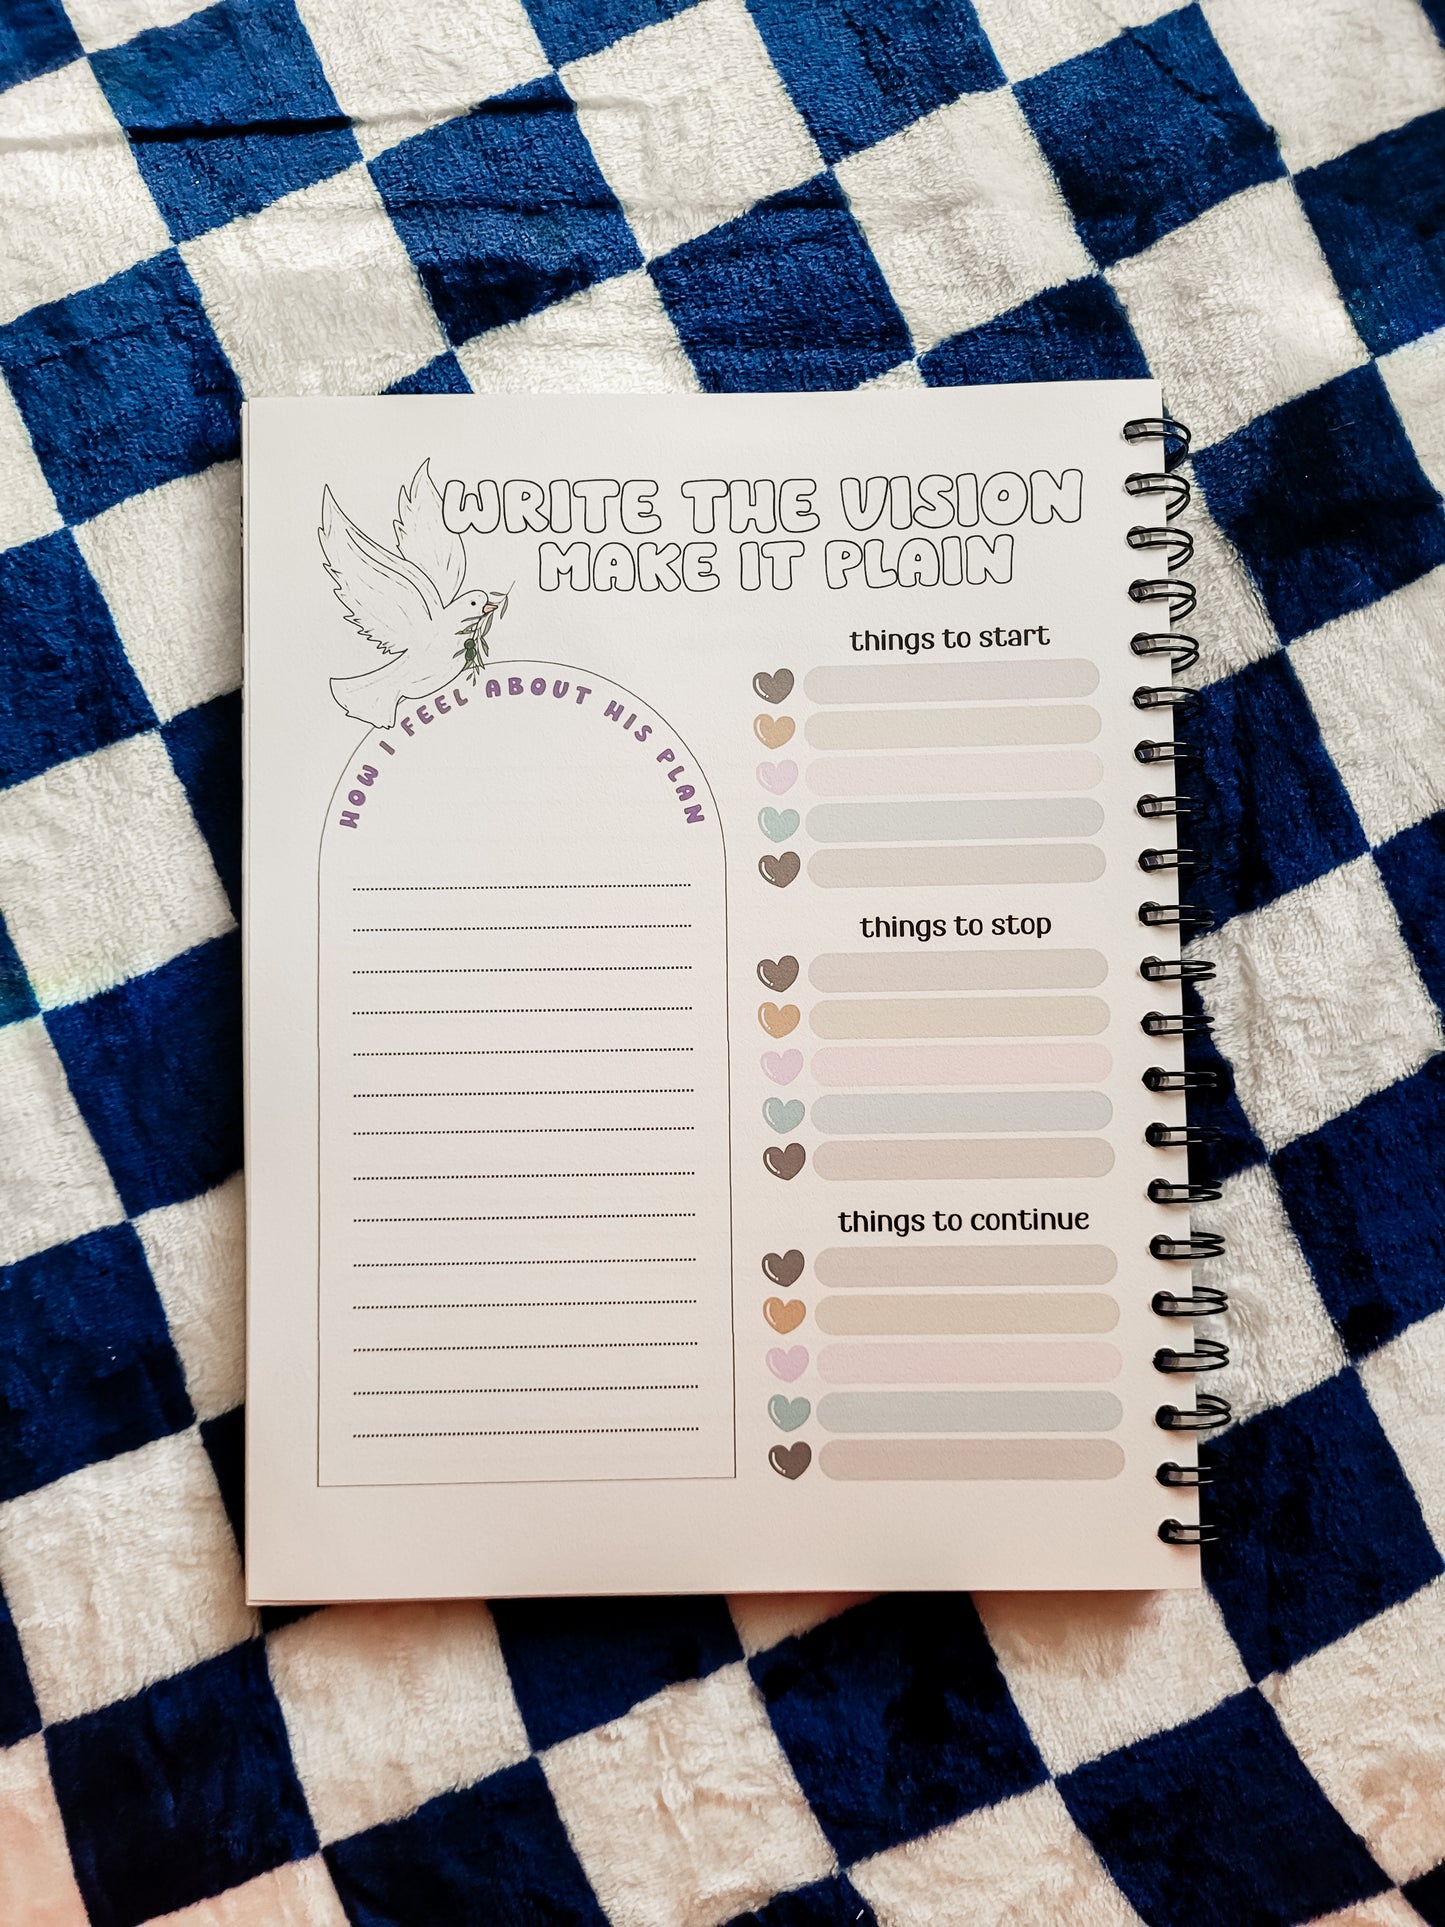 WRITE THE VISION
MAKE IT PLAIN
HOW I FEEL ABOUT HIS PLAN
things to start
things to stop
things to continue